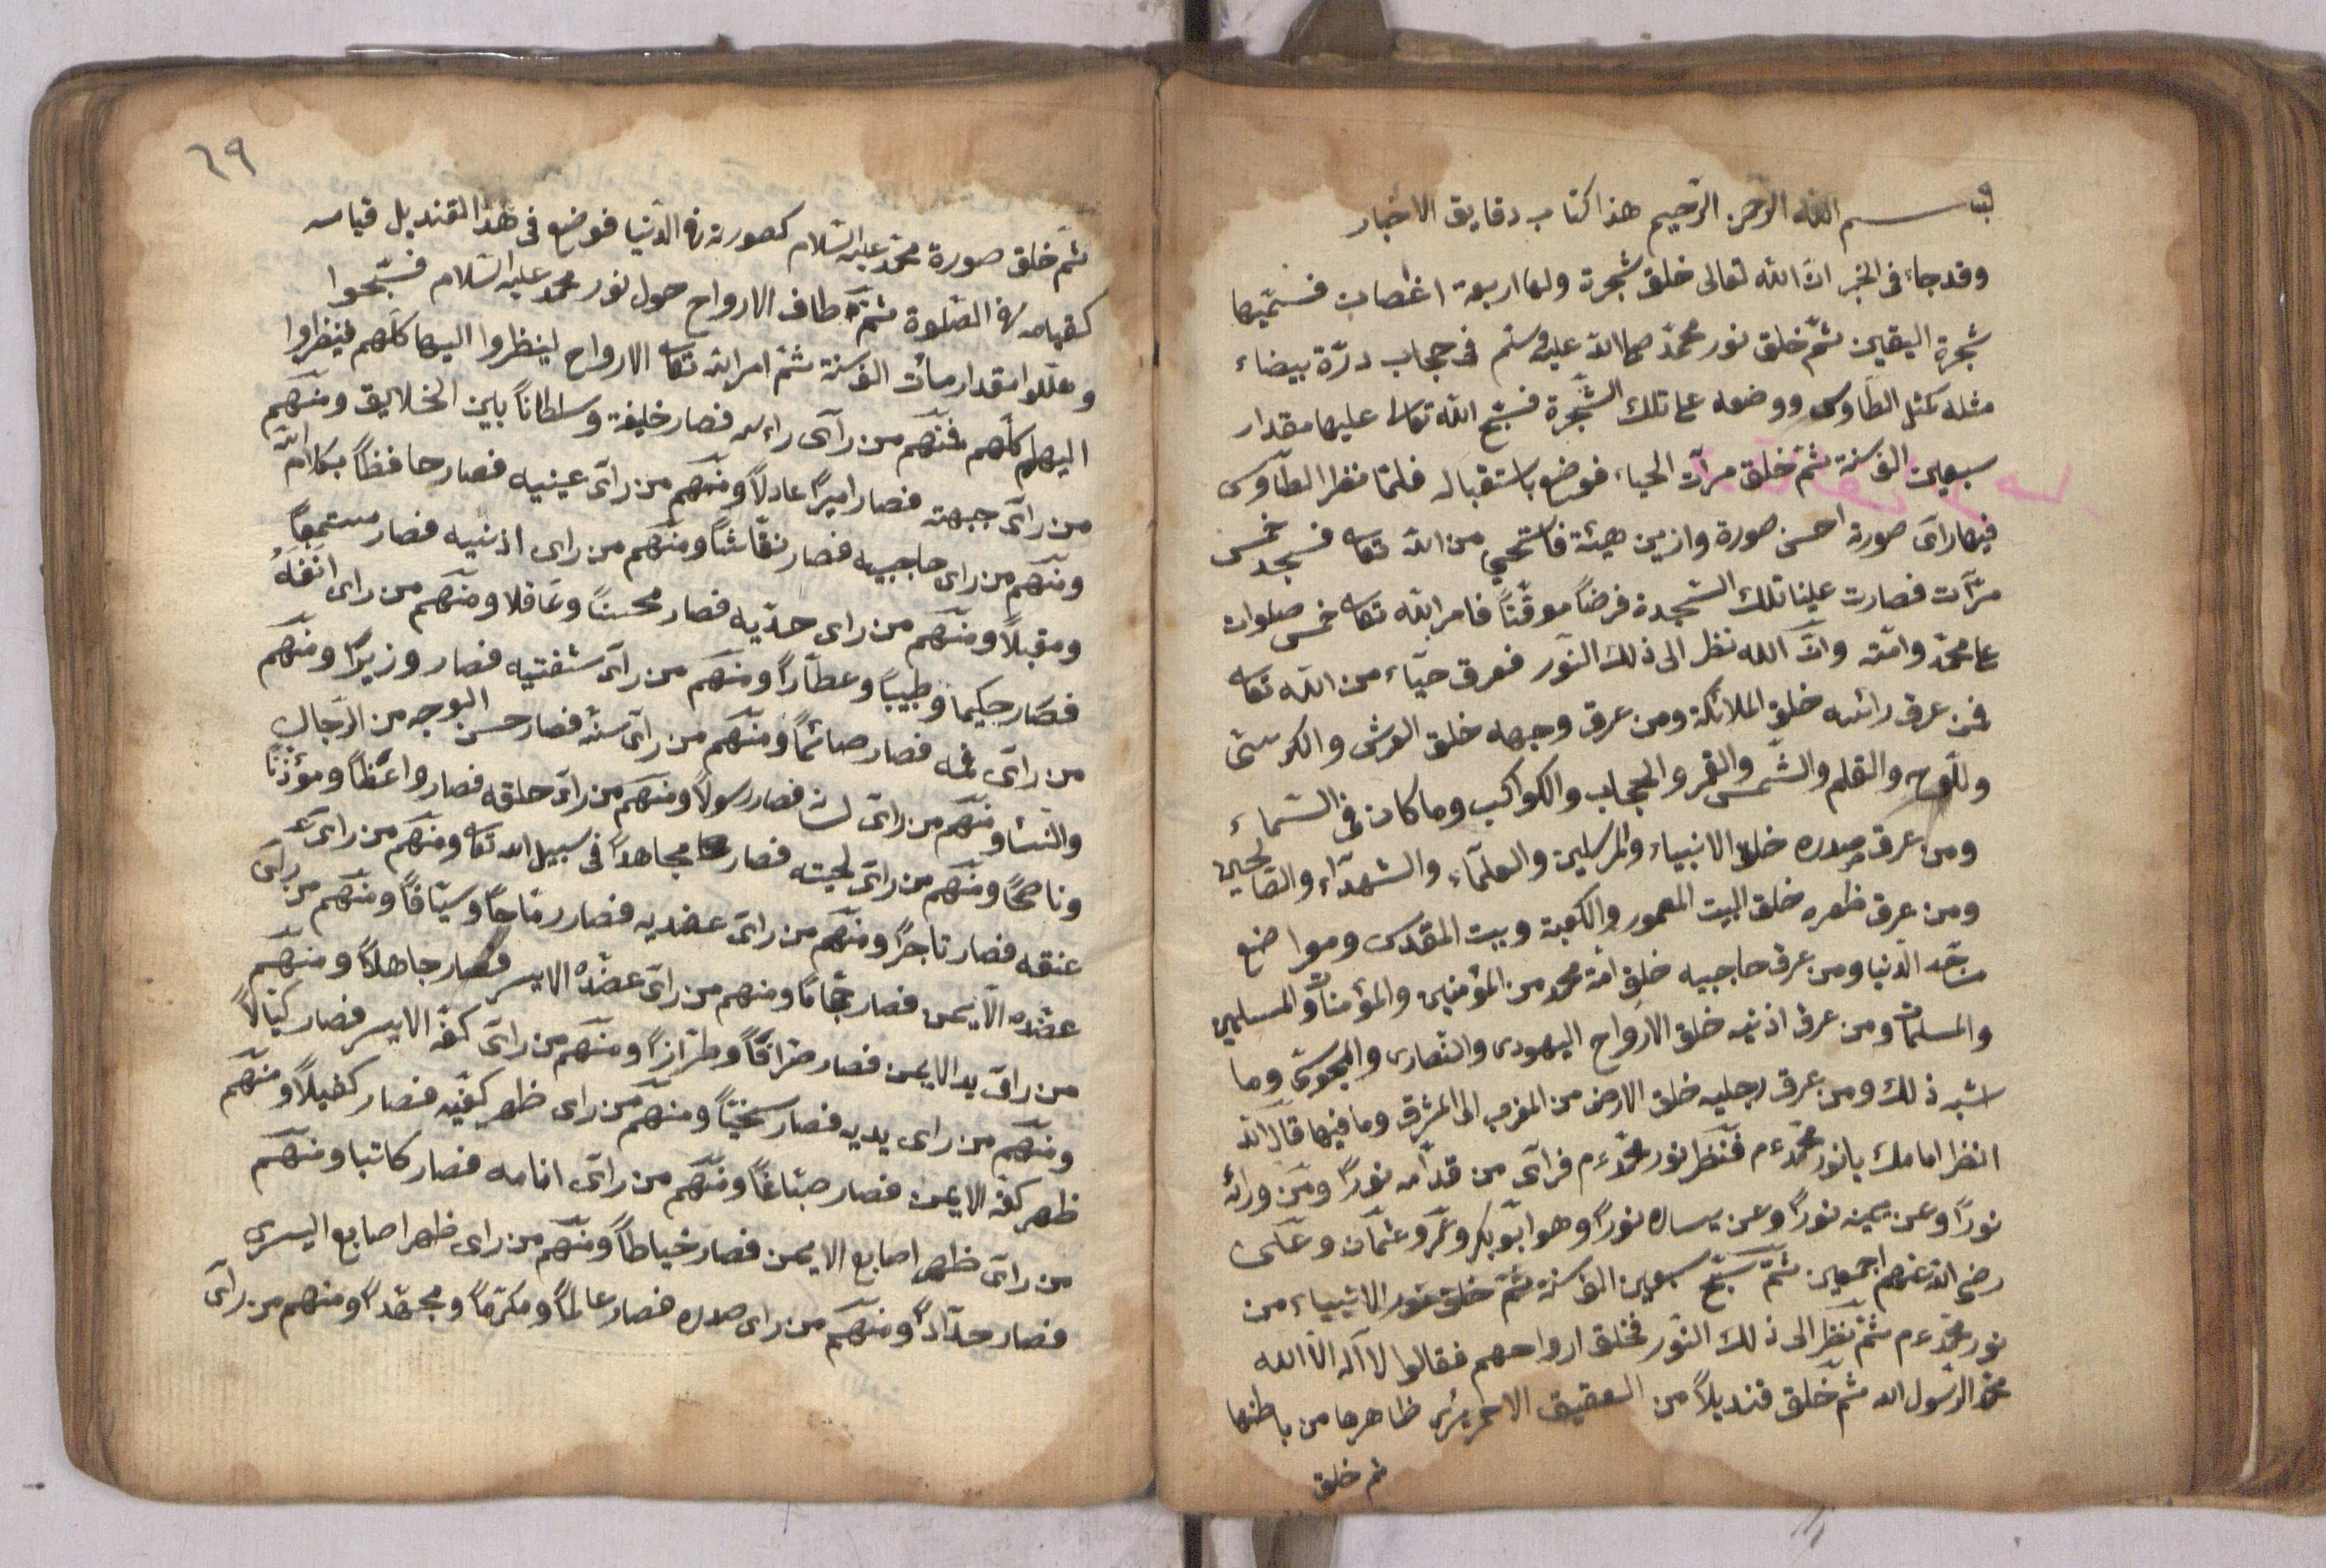 بسم الله الرحمن الرحيم هذا كتاب دقايق الاخبار
وقد جاء فى الخبر ان الله تعالى خلق شجرة ولها اربعة اغصان فسميها
شجرة اليقين ثم خلق نور محمد صلى الله عليه وسلم فى حجاب درة بيضاء
مثله كمثل الطاوس ووضعه على تلك الشجرة فسبح الله تعالى عليها مقدار
سبعين الف سنة ثم خلق مرآت الحياء فوضع باستقباله فلما نظر الطاوس
فيها رآى صورة احسن صورة وازين هيئة فاستحى من الله تعالى فسجد خمس
مرات فصارت علينا تلك السجدة فرضاً موقتاً فامر الله تعالى خمس صلوات
على محمد وامته وان الله نظر الى ذلك النور فعرق حياء من الله تعالى
فمن عرق رائسه خلق الملائكة ومن عرق وجهه خلق العرش والكرسى
وللوح والقلم والشمس والقمر والحجاب والكواكب وما كان فى السماء
ومن عرق صدره خلق الانبياء والمرسلين والعلماء والشهدآء والصالحين
ومن عرق ظهره خلق البيت المعمور والكعبة وبيت المقدس ومواضع
مساجد الدنيا ومن عرق حاجبيه خلق امة محمد من المؤمنين والمؤمنات والمسلمين
والمسلمات ومن عرق اذنيه خلق الارواح اليهودى والنصارى والمجوسى وما
اشبه ذلك ومن عرق رجليه خلق الارض من المغرب الى المشرق وما فيها قال الله
انظر امامك يا نور محمد ءم فنظر نور محمد ءم فرآى من قدامه نوراً ومن ورائه
نوراً وعن يمينه نوراً وعن يساره نوراً وهو ابو بكر وعمر وعثمان وعلى
رضى الله عنهم اجمعين ثم سبح سبعين الف سنة ثم خلق نور الانبياء من
نور محمد ءم ثم نظر الى ذلك النور فخلق ارواحهم فقالوا لا اله الا الله
محمد الرسول الله ثم خلق قنديلاً من العقيق الاحمر يرى ظاهرها من باطنها
ثم خلق
٦٩
ثم خلق صورة محمد عليه السلام كصورته فى الدنيا فوضع فى هذا القنديل قيامه
كقيامه فى الصلوة ثم طاف الارواح حول نور محمد عليه السلام فسبحوا
وهللوا مقدار مأت الف سنة ثم امر الله تعالى الارواح لينظروا اليها كلهم فينظروا
اليها كلهم فمنهم من رآى راءسه فصار خليفة وسلطاناً بين الخلايق ومنهم
من رآى جبهته فصار اميراً عادلاً ومنهم من رآى عينيه فصار حافظاً بكلام الله
ومنهم من راى حاجبيه فصار نقاشاً ومنهم من راى اذنيه فصار مستمعاً
ومقبلاً ومنهم من راى خديه فصار محسناً وعاقلا ومنهم من راى انفه
فصار حكيما وطبيباً وعطاراً ومنهم من رآى شفتيه فصار وزيراً ومنهم
من رآى فمه فصار صائماً ومنهم من رآى سنه فصار حسن الوجه من الرجال
والنسا ومنهم من رآى لسانه فصار رسولاً ومنهم من رآى حلقه فصار واعظاً ومؤذناً
وناصحاً ومنهم من رآى لحيته فصار مجاهداً فى سبيل الله تعالى ومنهم من رآى
عنقه فصار تاجراً ومنهم من رآى عضديه فصار رماحاً وسيافاً ومنهم من رآى
عضده الايمن فصار حجاماً ومنهم من رآى عضده الايسر فصار جاهلاً ومنهم
من رآى يد الايمن فصار صرافاً وطرازاً ومنهم من رآى كف الايسر فصار كيالاً
ومنهم من راى يديه فصار سخياً ومنهم من راى ظهر كفيه فصار كفيلاً ومنهم
ظهر كف الايمن فصار صباغاً ومنهم من رآى انامله فصار كاتبا ومنهم
من رآى ظهر اصابع الايمن فصار خياطاً ومنهم من راى ظهر اصابع اليسرى
فصار حداداً ومنهم من راى صدره فصار عالماً ومكرماً ومجتهداً ومنهم من رآى